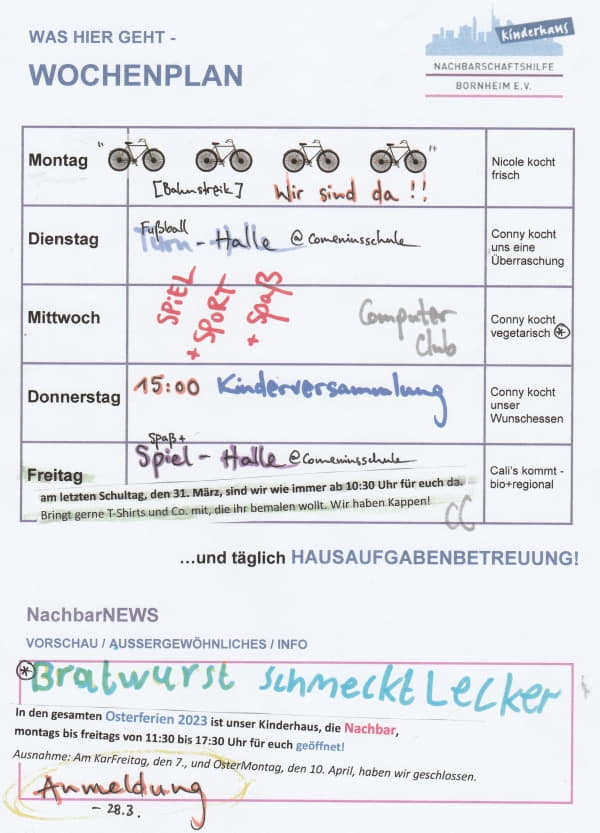 WAS HIER GEHT -
WOCHENPLAN
Kinderhaus
NACHBARSCHAFTSHILFE
BORNHEIM E.V.
Montag
" "
[Bahnstreik] Wir sind da !!
Nicole kocht
frisch
Dienstag
Fußball
Turn - Halle @Comeniusschule
Conny kocht
uns eine
Überraschung
Mittwoch
SPiEL
+ SPORT
+ Spaß
Computer
Club
Conny kocht
vegetarisch *
Donnerstag
15:00 Kinderversammlung
Conny kocht
unser
Wunschessen
Freitag
Spaß +
Spiel - Halle @Comeniusschule
am letzten Schultag, den 31. März, sind wir wie immer ab 10:30 Uhr für euch da.
Bringt gerne T-Shirts und Co. mit, die ihr bemalen wollt. Wir haben Kappen!
CC
Cali's kommt -
bio+regional
...und täglich HAUSAUFGABENBETREUUNG!
NachbarNEWS
VORSCHAU / AUSSERGEWÖHNLICHES / INFO
* Bratwurst schmeckt Lecker
In den gesamten Osterferien 2023 ist unser Kinderhaus, die Nachbar,
montags bis freitags von 11:30 bis 17:30 Uhr für euch geöffnet!
Ausnahme: Am KarFreitag, den 7., und OsterMontag, den 10. April, haben wir geschlossen.
Anmeldung
- 28.3.